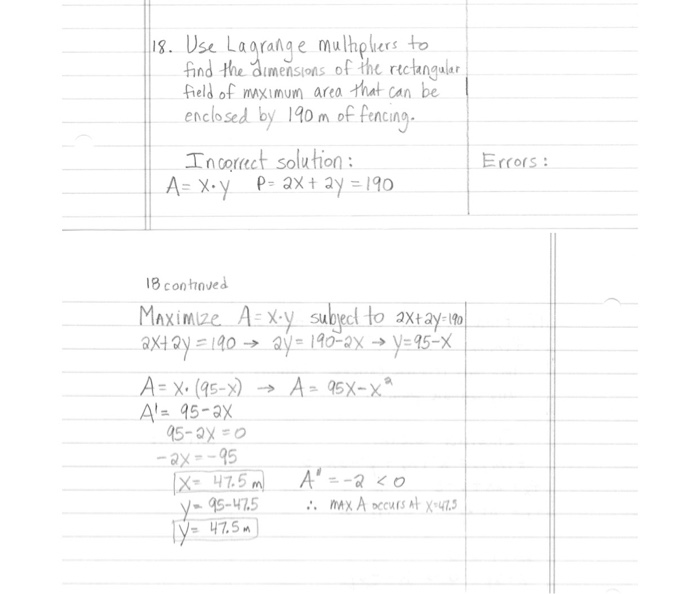 18. Use Lagrange multipliers to
find the dimensions of the rectangular
field of maximum area that can be
enclosed by 190 m of fencing.
Incorrect solution: Errors:
A = x·y P = 2x + 2y = 190
18 continued
Maximize A = x·y subject to 2x+2y=190
2x+2y = 190 → 2y = 190-2x → y = 95-x
A = x·(95-x) → A = 95x-x²
A' = 95-2x
95-2x = 0
-2x = -95
x = 47.5 m A" = -2 < 0
y = 95-47.5 ∴ max A occurs at x=47.5
y = 47.5 m